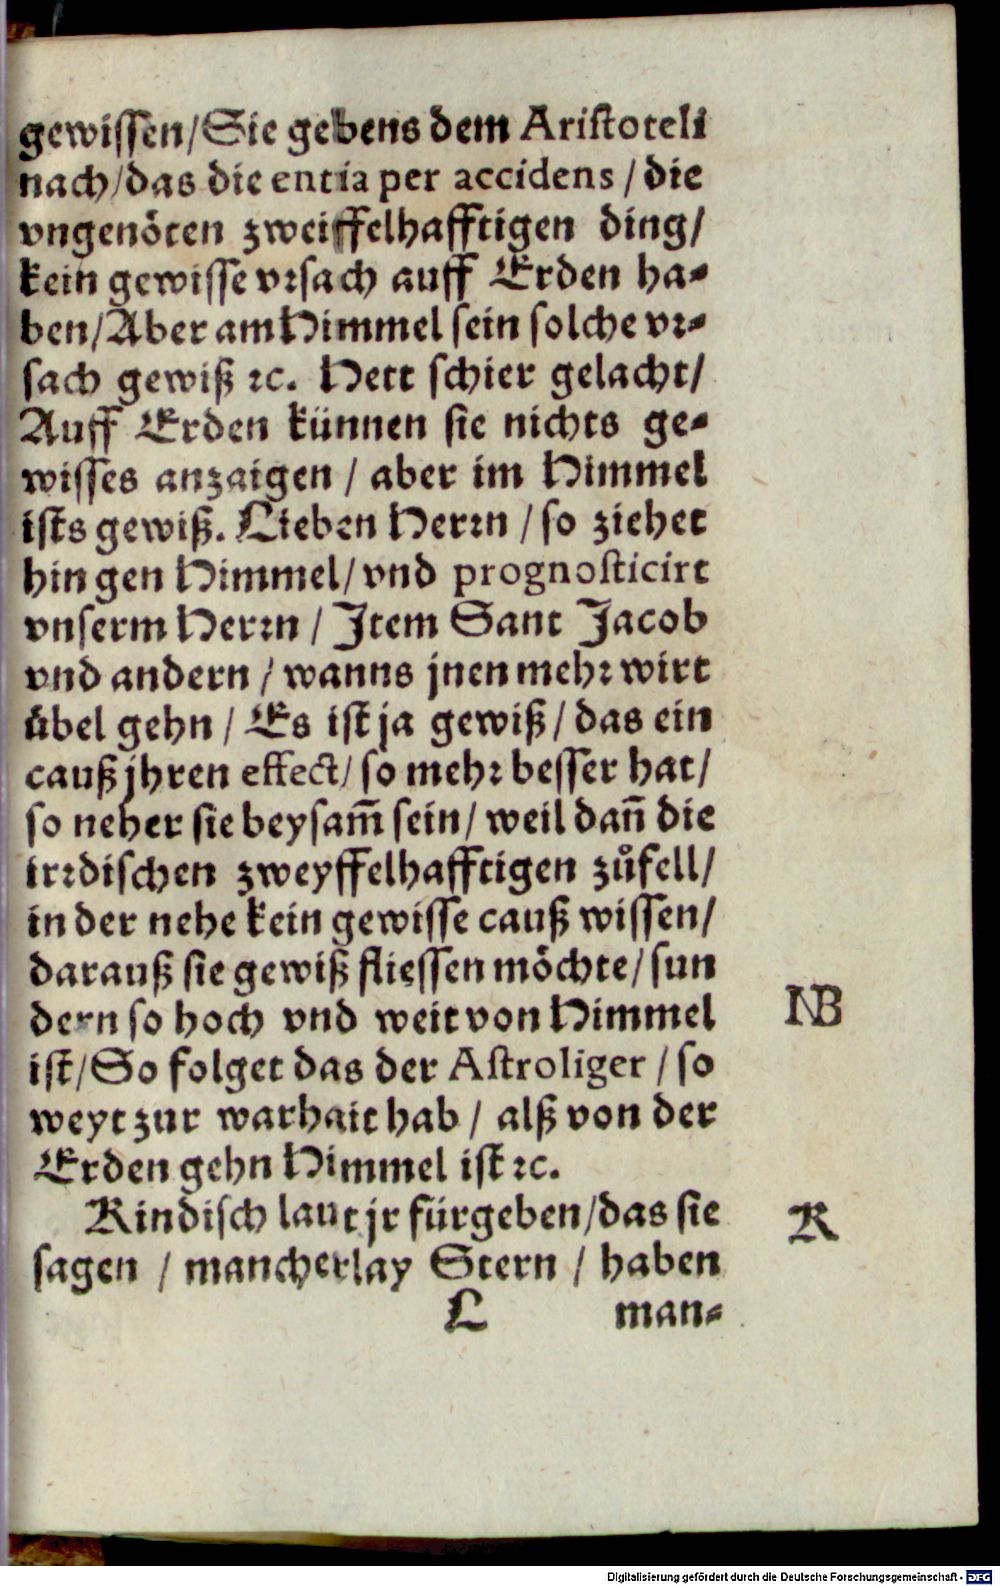 gewissen/Sie gebens dem Aristoteli
nach/das die entia per accidens / die
vngenöten zweiffelhafftigen ding/
kein gewisse vrsach auff Erden ha-
ben/Aber am Himmel sein solche vr-
sach gewiß ꝛc. Hett schier gelacht/
Auff Erden künnen sie nichts ge-
wisses anzaigen / aber im Himmel
ists gewiß. Lieben Herrn / so ziehet
hin gen Himmel/ vnd prognosticirt
vnserm Herrn / Item Sant Jacob
vnd andern / wanns jnen mehr wirt
übel gehn / Es ist ja gewiß / das ein
cauß jhren effect/ so mehr besser hat/
so neher sie beysam̃ sein/ weil dañ die
irrdischen zweyffelhafftigen zůfell/
in der nehe kein gewisse cauß wissen/
darauß sie gewiß fliessen möchte/ sun
dern so hoch vnd weit von Himmel
ist/So folget das der Astroliger / so
weyt zur warhait hab / alß von der
Erden gehn Himmel ist ꝛc.
NB
Kindisch laut jr fürgeben/das sie
K
sagen / mancherlay Stern / haben
L man-
Digitalisierung gefördert durch die Deutsche Forschungsgemeinschaft - DFG